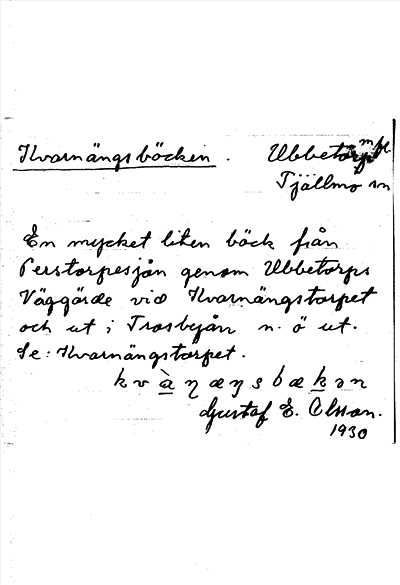 Kvarnängsbäcken. Ubbetorp m fl.
Tjällmo sn
En mycket liten bäck från
Perstorpesjön genom Ubbetorps
Väggärde vid Kvarnängstorpet
och ut i Trosbyån n. ö ut.
Se: Kvarnängstorpet.
kvàŋæŋsbækən
Gustaf E. Olsson.
1930